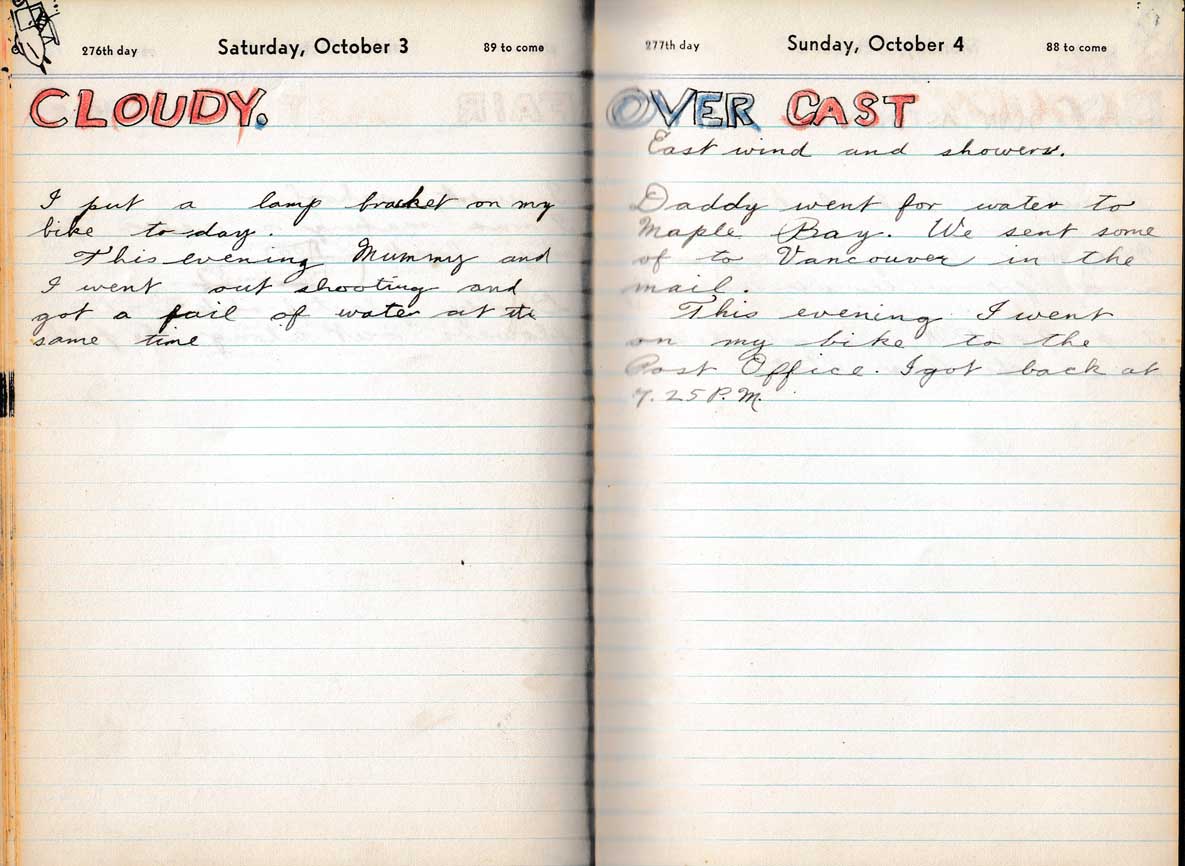 276th day Saturday, October 3 89 to come
CLOUDY.
I put a lamp bracket on my
bike to day.
This evening Mummy and
I went out shooting and
got a pail of water at the
same time
277th day Sunday, October 4 88 to come
OVER CAST
East wind and showers.
Daddy went for water to
Maple Bay. We sent some
of to Vancouver in the
mail.
This evening I went
on my bike to the
Post Office. I got back at
7.25 P.M.